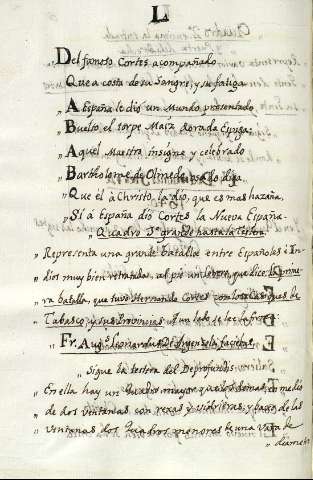 L
Del famoso Cortes acompañado
Que a costa de su Sangre, y su fatiga
„ A España le dio un Mundo presentado
„ Buelto el torpe Maiz dorada Espiga:
„ Aquel Maestro insigne y celebrado
„ Bartholome de Olmedo, osado diga
„ Que èl à Christo, la dio, que es mas hazaña,
„ Si à España dió Cortes la Nueva España.
„ Quadro 3º grande hasta la testera.
„ Representa una grande batalla entre Españoles è In-
„ dios muy bien retratada. al pie un letrero, que dice: La prime-
„ ra batalla, que tuvo Hernando Cortes con los Caziques de
„ Tabasco, y sus Provincias. A un lado se lee la firma
„ Fr. Augs. Leonardus
„ Sigue la testera del Deprofundis
„ En ella hay un Quadro mayor que los demas, en medio
„ de dos ventanas con rexas y vidrieras, y baxo de las
„ ventanas dos Quadros menores de una vara de
„ diametr